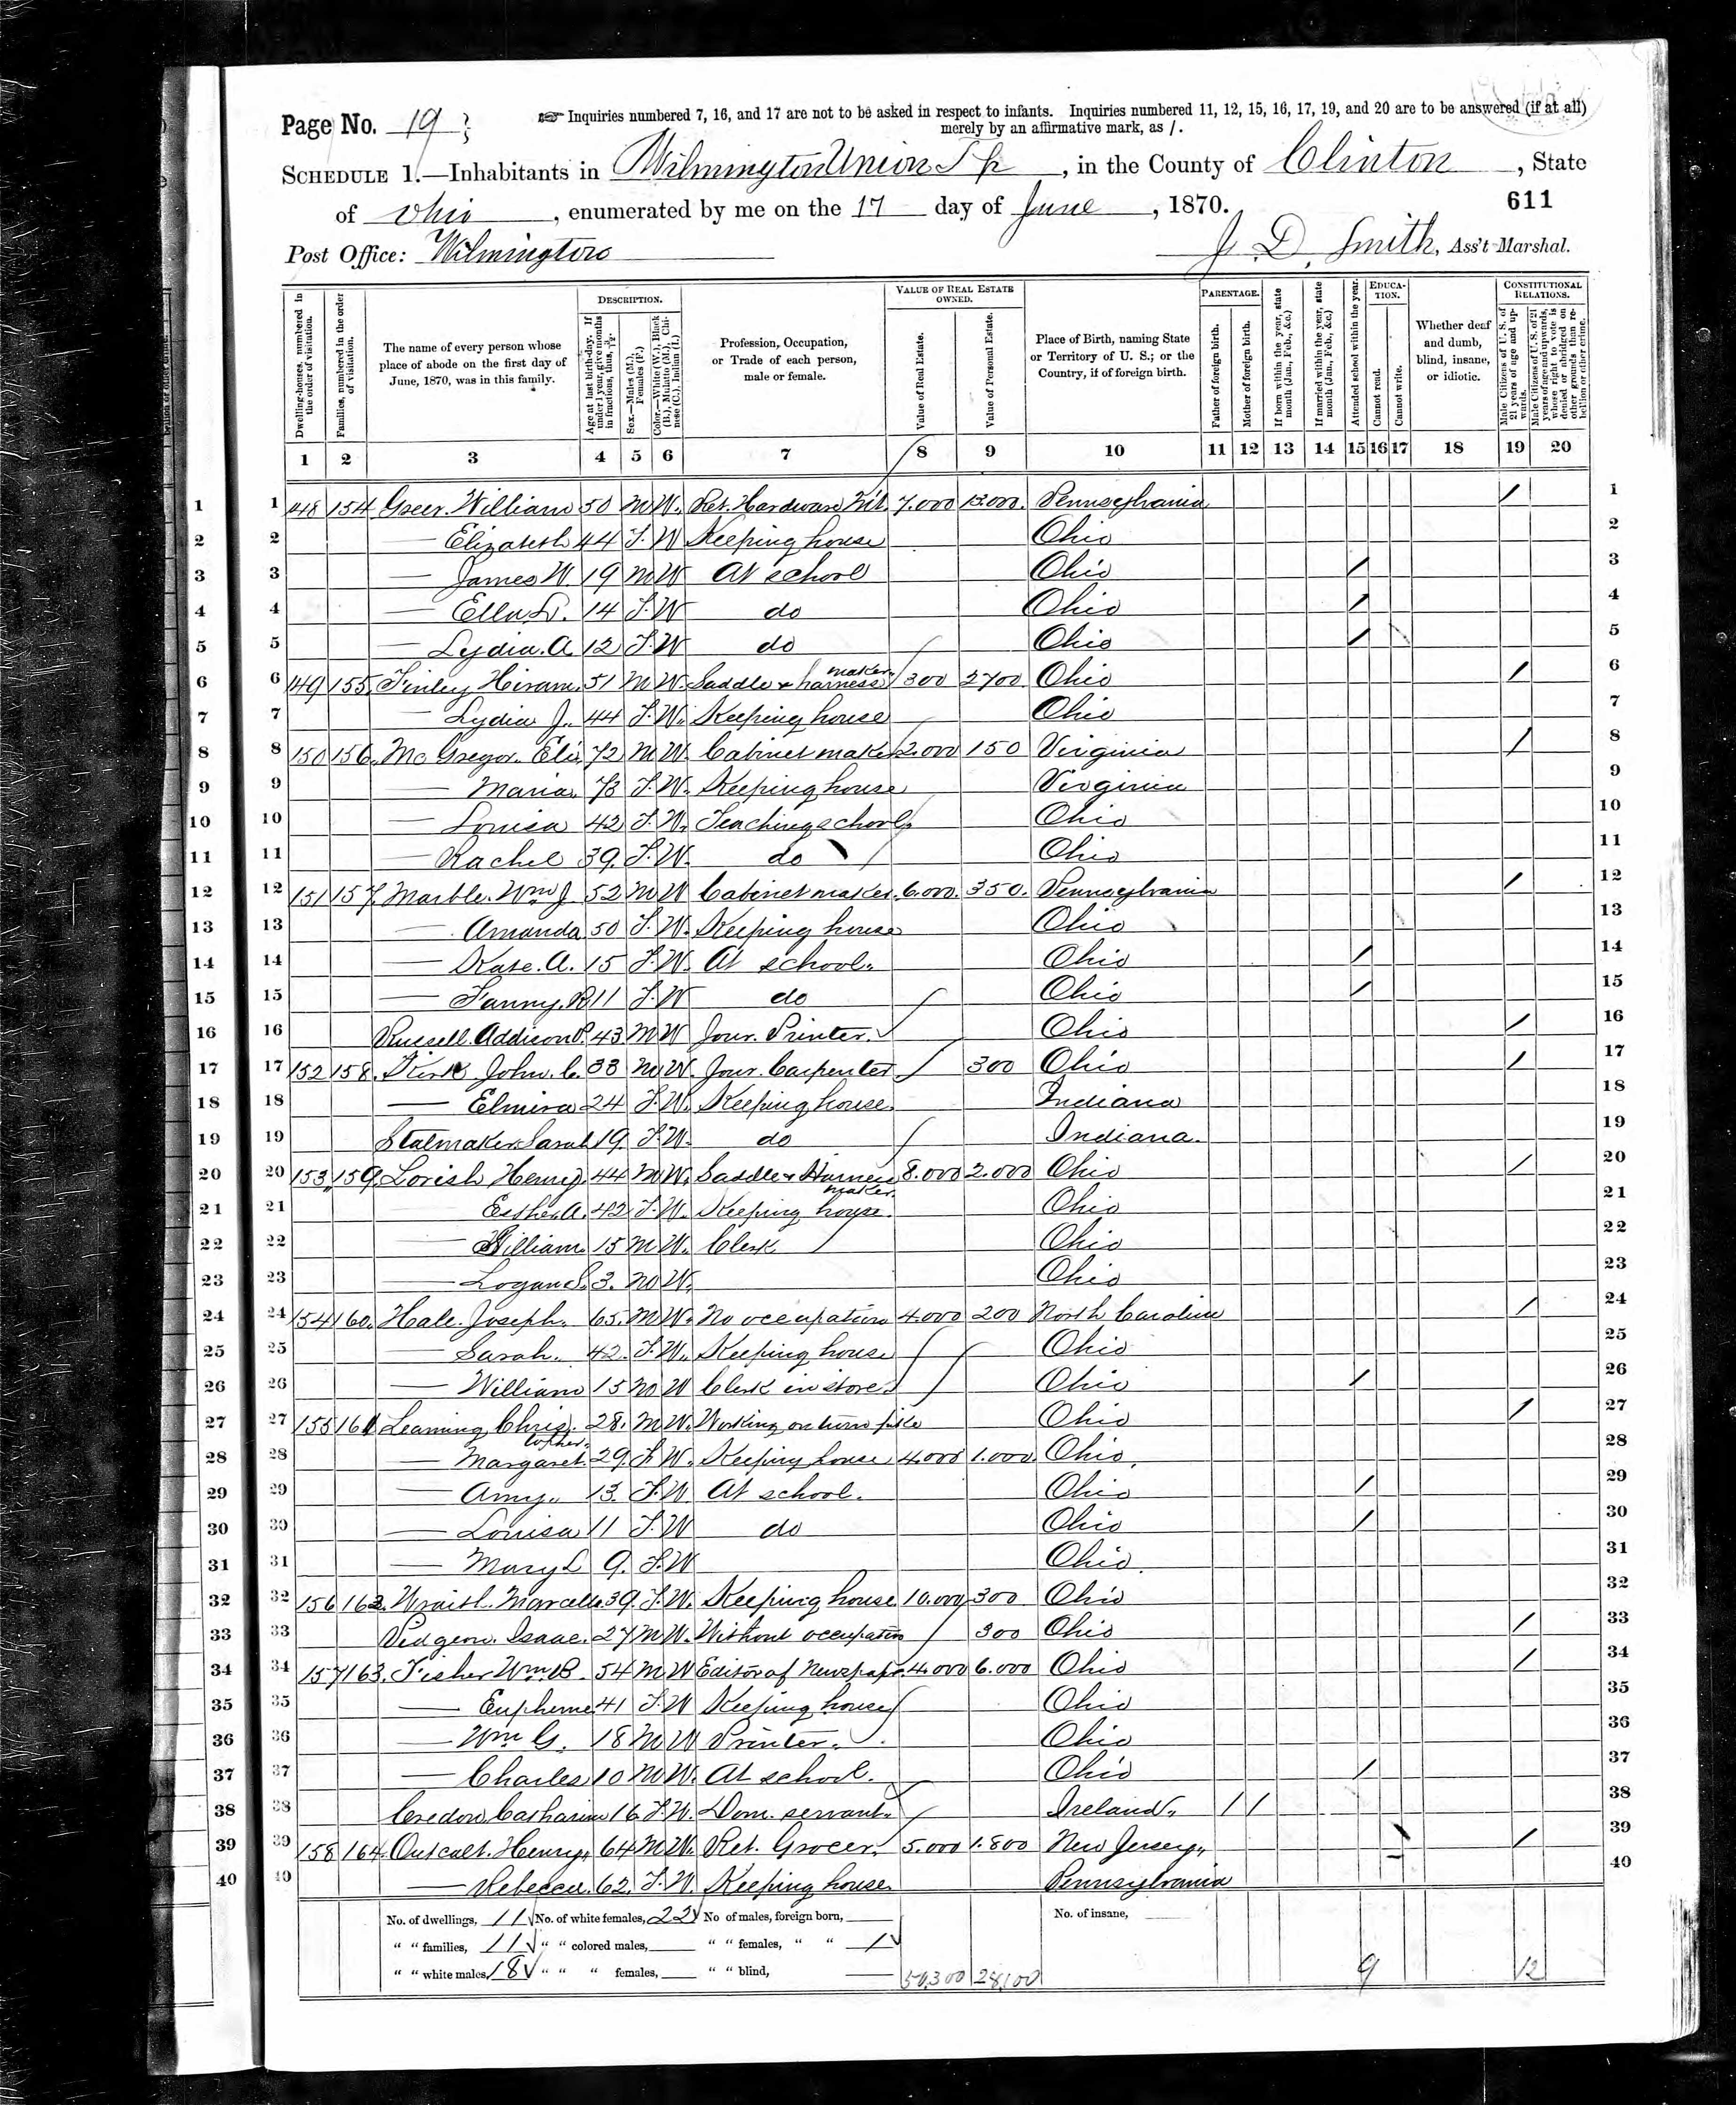 Page No. 19
☞ Inquiries numbered 7, 16, and 17 are not to be asked in respect to infants. Inquiries numbered 11, 12, 15, 16, 17, 19, and 20 are to be answered (if at all)
merely by an affirmative mark, as /.
SCHEDULE 1.—Inhabitants in Wilmington Union Tp, in the County of Clinton, State
of Ohio, enumerated by me on the 17 day of June, 1870.
611
Post Office: Wilmington
J. D. Smith, Ass't Marshal.
Dwelling-houses, numbered in the order of visitation.
Families, numbered in the order of visitation.
The name of every person whose place of abode on the first day of June, 1870, was in this family.
DESCRIPTION.
Age at last birth-day. If under 1 year, give months in fractions, thus, 3/12.
Sex.—Males (M.), Females (F.)
Color.—White (W.), Black (B.), Mulatto (M.), Chinese (C.), Indian (I.)
Profession, Occupation, or Trade of each person, male or female.
VALUE OF REAL ESTATE OWNED.
Value of Real Estate.
Value of Personal Estate.
Place of Birth, naming State or Territory of U. S.; or the Country, if of foreign birth.
PARENTAGE.
Father of foreign birth.
Mother of foreign birth.
If born within the year, state month (Jan., Feb., &c.)
If married within the year, state month (Jan., Feb., &c.)
Attended school within the year.
EDUCATION.
Cannot read.
Cannot write.
Whether deaf and dumb, blind, insane, or idiotic.
CONSTITUTIONAL RELATIONS.
Male Citizens of U. S. of 21 years of age and upwards.
Male Citizens of U. S. of 21 years of age and upwards, whose right to vote is denied or abridged on other grounds than rebellion or other crime.
1 2 3 4 5 6 7 8 9 10 11 12 13 14 15 16 17 18 19 20
1 148 154 Greer. William 50 M W. Ret. Hardware 7.000 13.000. Pennsylvania / 1
2 — Elizabeth 44 F. W Keeping house Ohio 2
3 — James W. 19 M W At school Ohio / 3
4 — Ella L. 14 F. W do Ohio / 4
5 — Lydia. A 12 F. W do Ohio / 5
6 149 155 Finley Hiram. 51 M W. Saddle & harness maker 1300 2700 Ohio / 6
7 — Lydia J. 44 F. W. Keeping house Ohio 7
8 150 156. McGregor. Eli. 72 M W. Cabinet maker 2.000 150 Virginia / 8
9 — Maria. 73 F. W. Keeping house Virginia 9
10 — Louisa 42 F. W. Teaching school Ohio 10
11 — Rachel 39. F. W. do Ohio 11
12 151 157. Marble. Wm J 52 M W Cabinet maker. 6.000. 350. Pennsylvania / 12
13 — Amanda 50 F. W. Keeping house Ohio 13
14 — Kate. A. 15 F. W. At school. Ohio / 14
15 — Fanny. B 11 F. W do Ohio / 15
16 Russell. Addison P. 43 M W Jour. Printer. Ohio / 16
17 152 158. Kirk John. C. 33 M W. Jour. Carpenter 300 Ohio / 17
18 — Elmira 24 F. W. Keeping house. Indiana 18
19 Stalmaker Sarah 19. F. W. do Indiana. 19
20 153 159. Lorish Henry. 44 M W. Saddle & Harness maker. 8.000 2.000 Ohio / 20
21 Esther A. 42 F. W. Keeping house. Ohio 21
22 — William 15 M W. Clerk Ohio 22
23 — Logan S. 3. M W. Ohio 23
24 154 160. Hale. Joseph. 65. M W. No occupation 4.000 200 North Carolina / 24
25 — Sarah. 42. F. W. Keeping house Ohio 25
26 — William 15 M W Clerk in store Ohio / 26
27 155 161 Leaming Christopher. 28. M W. Working on turn pike Ohio / 27
28 — Margaret. 29. F. W. Keeping house 4.000 1.000. Ohio 28
29 — Amy. 13. F. W At school. Ohio / 29
30 — Louisa 11 F. W do Ohio / 30
31 — Mary L 9. F. W Ohio 31
32 156 162. Marcella 39. F. W. Keeping house 10.000 300 Ohio 32
33 Pidgeon. Isaac. 27 M W. Without occupation 300 Ohio / 33
34 157 163. Fisher Wm B. 54 M W Editor of Newspaper. 4.000 6.000 Ohio / 34
35 — Eupheme 41 F. W Keeping house Ohio 35
36 — Wm G. 18 M W Printer. Ohio 36
37 — Charles 10 M W. At school. Ohio / 37
38 Credon Catharine 16 F. W. Dom. servant. Ireland / / 38
39 158 164. Outcalt. Henry. 64 M W. Ret. Grocer. 5.000 1.800 New Jersey / 39
40 — Rebecca. 62. F. W. Keeping house. Pennsylvania 40
No. of dwellings, 11 No. of white females, 22 No of males, foreign born, No. of insane,
" " families, 11 " " colored males, " " females, " " 1
" " white males, 18 " " " females, " " blind, 50300 28100 9 12